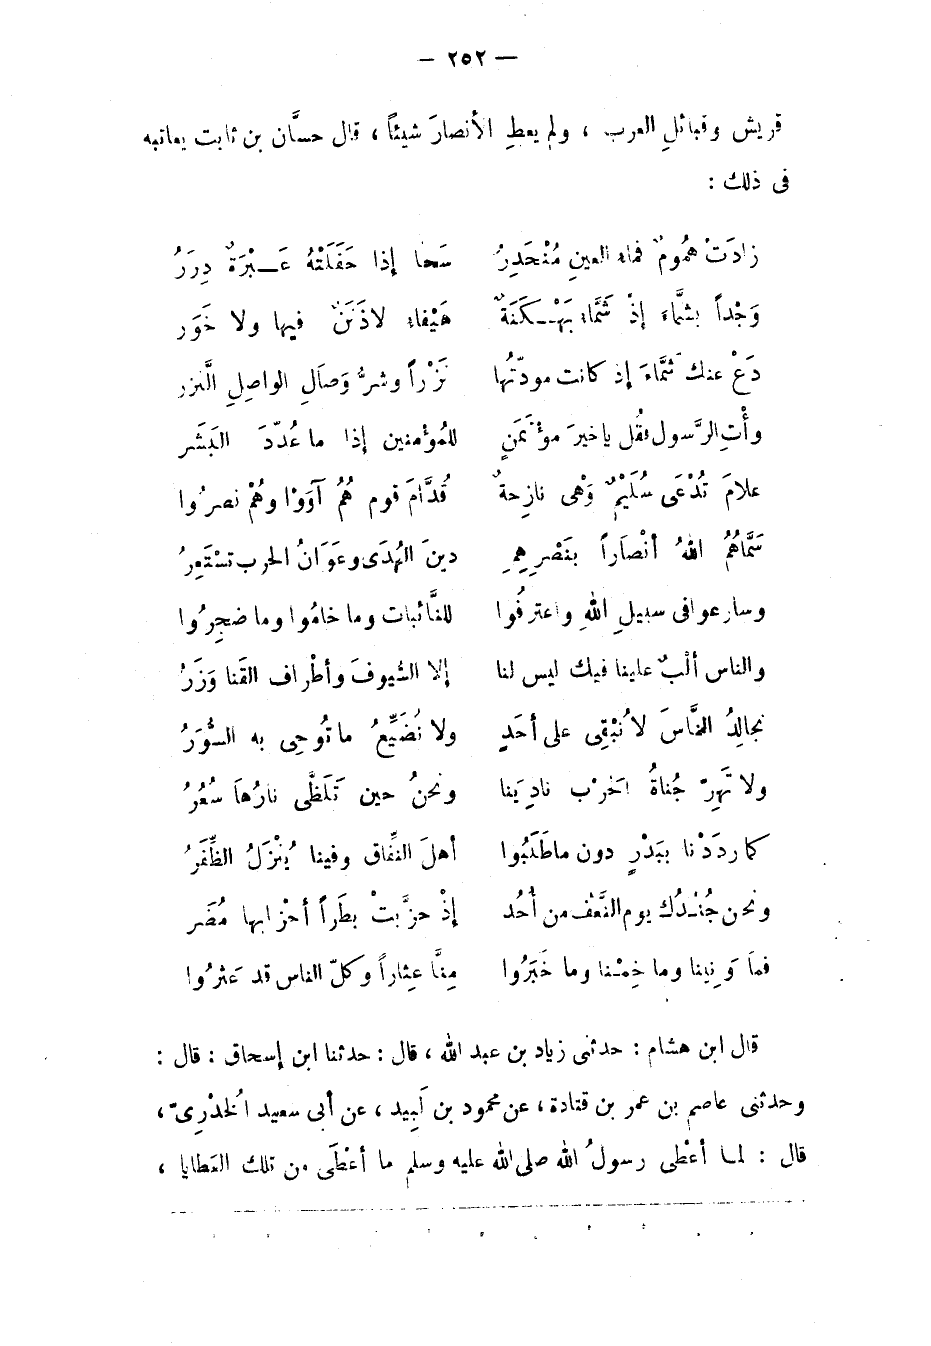 — ٢٥٢ —
قريش وقبائلِ العرب ، ولم يعطِ الأنصارَ شيئاً ، قال حسَّان بن ثابت يعاتبه
فى ذلك :
زادَتْ همُومٌ فماء العينِ مُنْحَدِرُ سَحا إذا حَفَلَتْهُ عَـبْرَةٌ دِرَرُ
وَجْداً بشمَّاءَ إذْ شَمَّاء بَهْـكَنَةٌ هَيْفاء لاذَنَنٌ فيها ولا خَوَر
دَعْ عنك شمَّاءَ إذ كانت مودّتُها نَزْراً وشرُّ وَصالِ الواصلِ النَّزر
وأْتِ الرَّسول فقُل ياخيرَ مؤتَمَنٍ للمُؤمنين إذا ما عُدّدَ البَشَر
علامَ تُدْعَى سُلَيْمٌ وَهْى نازحةٌ قُدَّامَ قوم هُمُ آوَوْا وهُمْ نصرُوا
سَمَّاهُمُ اللهُ أنْصَاراً بنَصْرِهِمِ دينَ الهُدَى وعَوَانُ الحرب تسْتَعِرُ
وسارعوا فى سبيلِ اللهِ واعترفُوا للنَّائبات وما خامُوا وما ضجِرُوا
والناس ألْبٌ علينا فيك ليس لنا إلا السُّيوفَ وأطْراف القَنا وَزَرُ
نجالِدُ النَّاسَ لا نُبْقِى على أحَدٍ ولا نُضَيِّعُ ما تُوحِى به السُّوَرُ
ولا تَهِرّ جُناةُ الحَرْب نادِيَنا ونحنُ حين تَلَظَّى نارُها سُعُرُ
كما ردَدْنا ببَدْرٍ دون ماطَلَبُوا أهلَ النِّفاق وفينا يُنْزَلُ الظَّفَرُ
ونحن جُنْـدُك يوم النَّعْف من أُحُد إذْ حزَّبتْ بطَراً أحْزابها مُضَر
فمَا وَنِينا وما خِمْنا وما خَبَرُوا مِنَّا عِثاراً وكلّ الناس قد عَثرُوا
قال ابن هشام : حدثنى زياد بن عبد الله ، قال : حدثنا ابن إسحاق : قال :
وحدثنى عاصم بن عمر بن قتادة ، عن محمود بن لَبِيد ، عن أبى سعيد الْخدْرِىّ ،
قال : لمـا أعْطى رسولُ الله صلى الله عليه وسلم ما أعْطَى من تلك العطايا ،